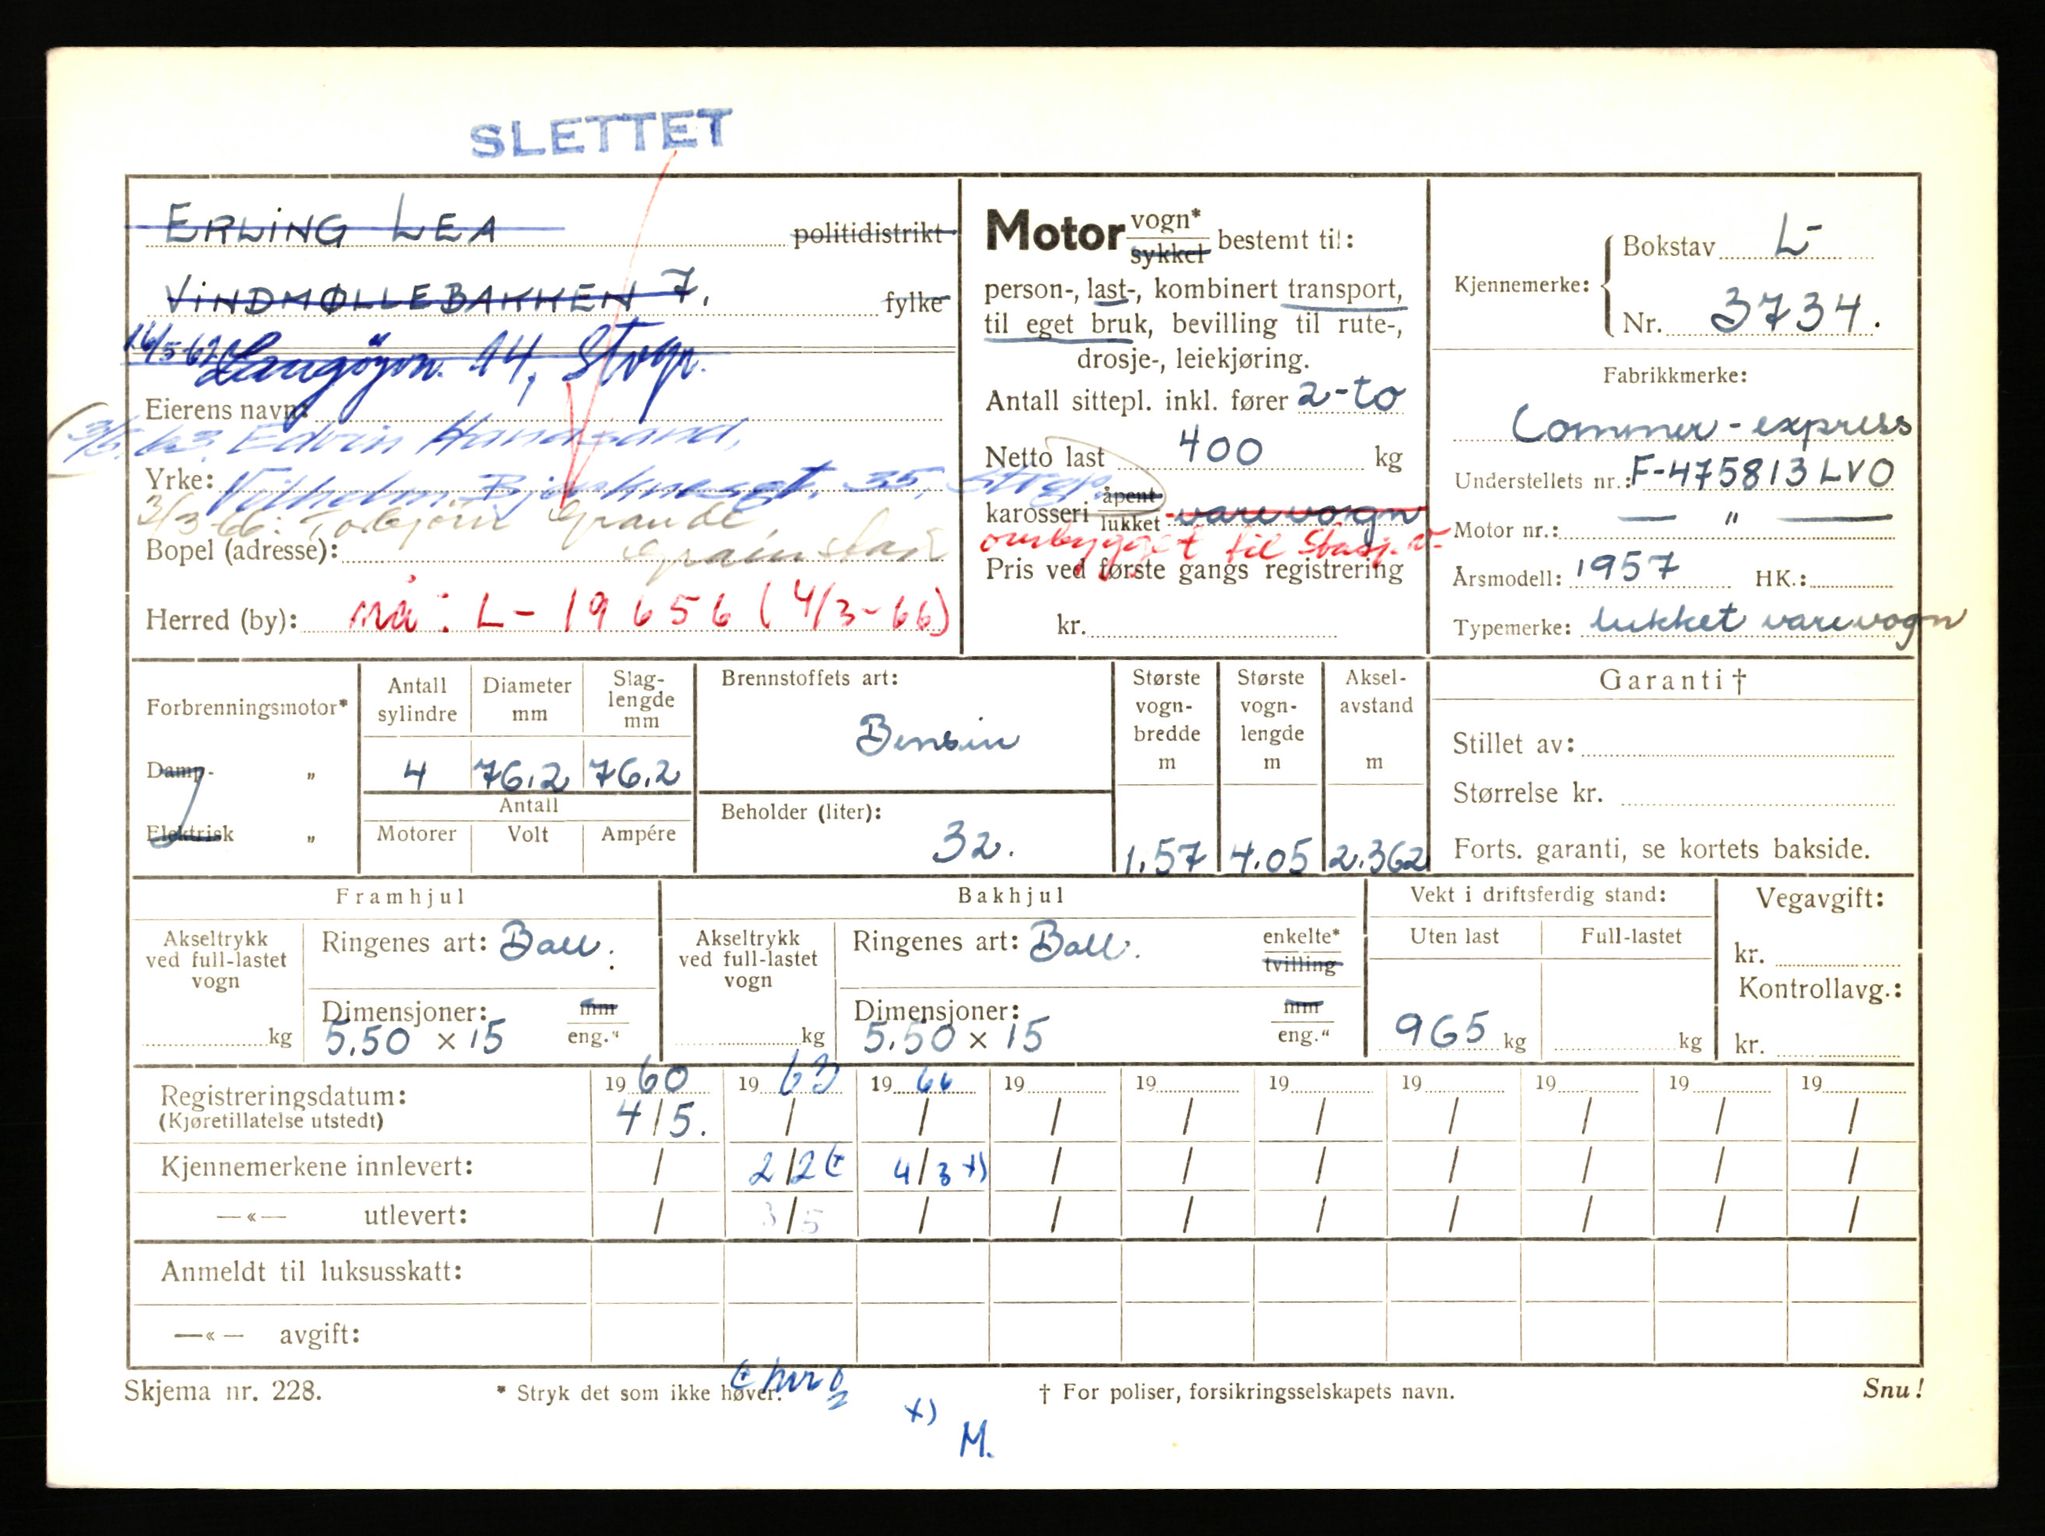 SLETTET
ERLING LEA politidistrikt
VINDMØLLEBAKKEN 7. fylke
16/5-62. 14, Stvgr.
Eierens navn:
3/5.63. Edvin Handeland,
Yrke: 35, Stvgr.
3/3-66: Torbjörn Grande
Bopel (adresse):
Herred (by): nå: L-19656 (4/3-66)
Motor vogn* sykkel bestemt til:
person-, last-, kombinert transport,
til eget bruk, bevilling til rute-,
drosje-, leiekjøring.
Antall sittepl. inkl. fører 2-to
Netto last 400 kg
karosseri åpent lukket varevogn
ombygget til Stasj. v.
Pris ved første gangs registrering
kr.
Kjennemerke: Bokstav L-
Nr. 3734.
Fabrikkmerke:
Commer-express
Understellets nr.: F-475813 LVO
Motor nr.: — " —
Årsmodell: 1957 HK.:
Typemerke: lukket varevogn
Forbrenningsmotor*
Damp- "
Elektrisk "
Antall sylindre
4
Diameter mm
76.2
Slag-lengde mm
76.2
Antall
Motorer Volt Ampére
Brennstoffets art:
Bensin
Beholder (liter):
32.
Største vogn-bredde m
1.57
Største vogn-lengde m
4.05
Aksel-avstand m
2.362
Garanti †
Stillet av:
Størrelse kr.
Forts. garanti, se kortets bakside.
Framhjul
Akseltrykk ved full-lastet vogn
kg
Ringenes art: Ball.
Dimensjoner: mm
5.50 × 15 eng."
Bakhjul
Akseltrykk ved full-lastet vogn
kg
Ringenes art: Ball. enkelte* tvilling
Dimensjoner: mm
5.50 × 15 eng."
Vekt i driftsferdig stand:
Uten last Full-lastet
965 kg kg
Vegavgift:
kr.
Kontrollavg.:
kr.
Registreringsdatum: 1960 1963 1966 19 19 19 19 19 19 19
(Kjøretillatelse utstedt) 4/5. / / / / / / / / /
Kjennemerkene innlevert: / 2/2 (+ 4/3 x) / / / / / / /
—«— utlevert: / 3/5 / / / / / / / /
Anmeldt til luksusskatt:
—«— avgift:
Skjema nr. 228. * Stryk det som ikke høver. † For poliser, forsikringsselskapets navn. Snu!
x)
M.